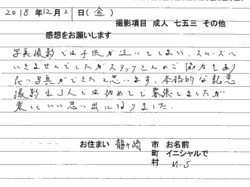 2018年12月2日(金)
撮影項目 成人 七五三 その他
感想をお願いします
写真撮影では子供が泣いてしまい、スムーズに
いきませんでしたがスタッフさんのご協力もあり
良い写真ができたと思います。本格的な記念
撮影は3人では初めてで緊張しましたが
楽しいいい思い出になりました。
お住まい 龍ヶ崎 市 町 村
お名前 イニシャルで
M.S